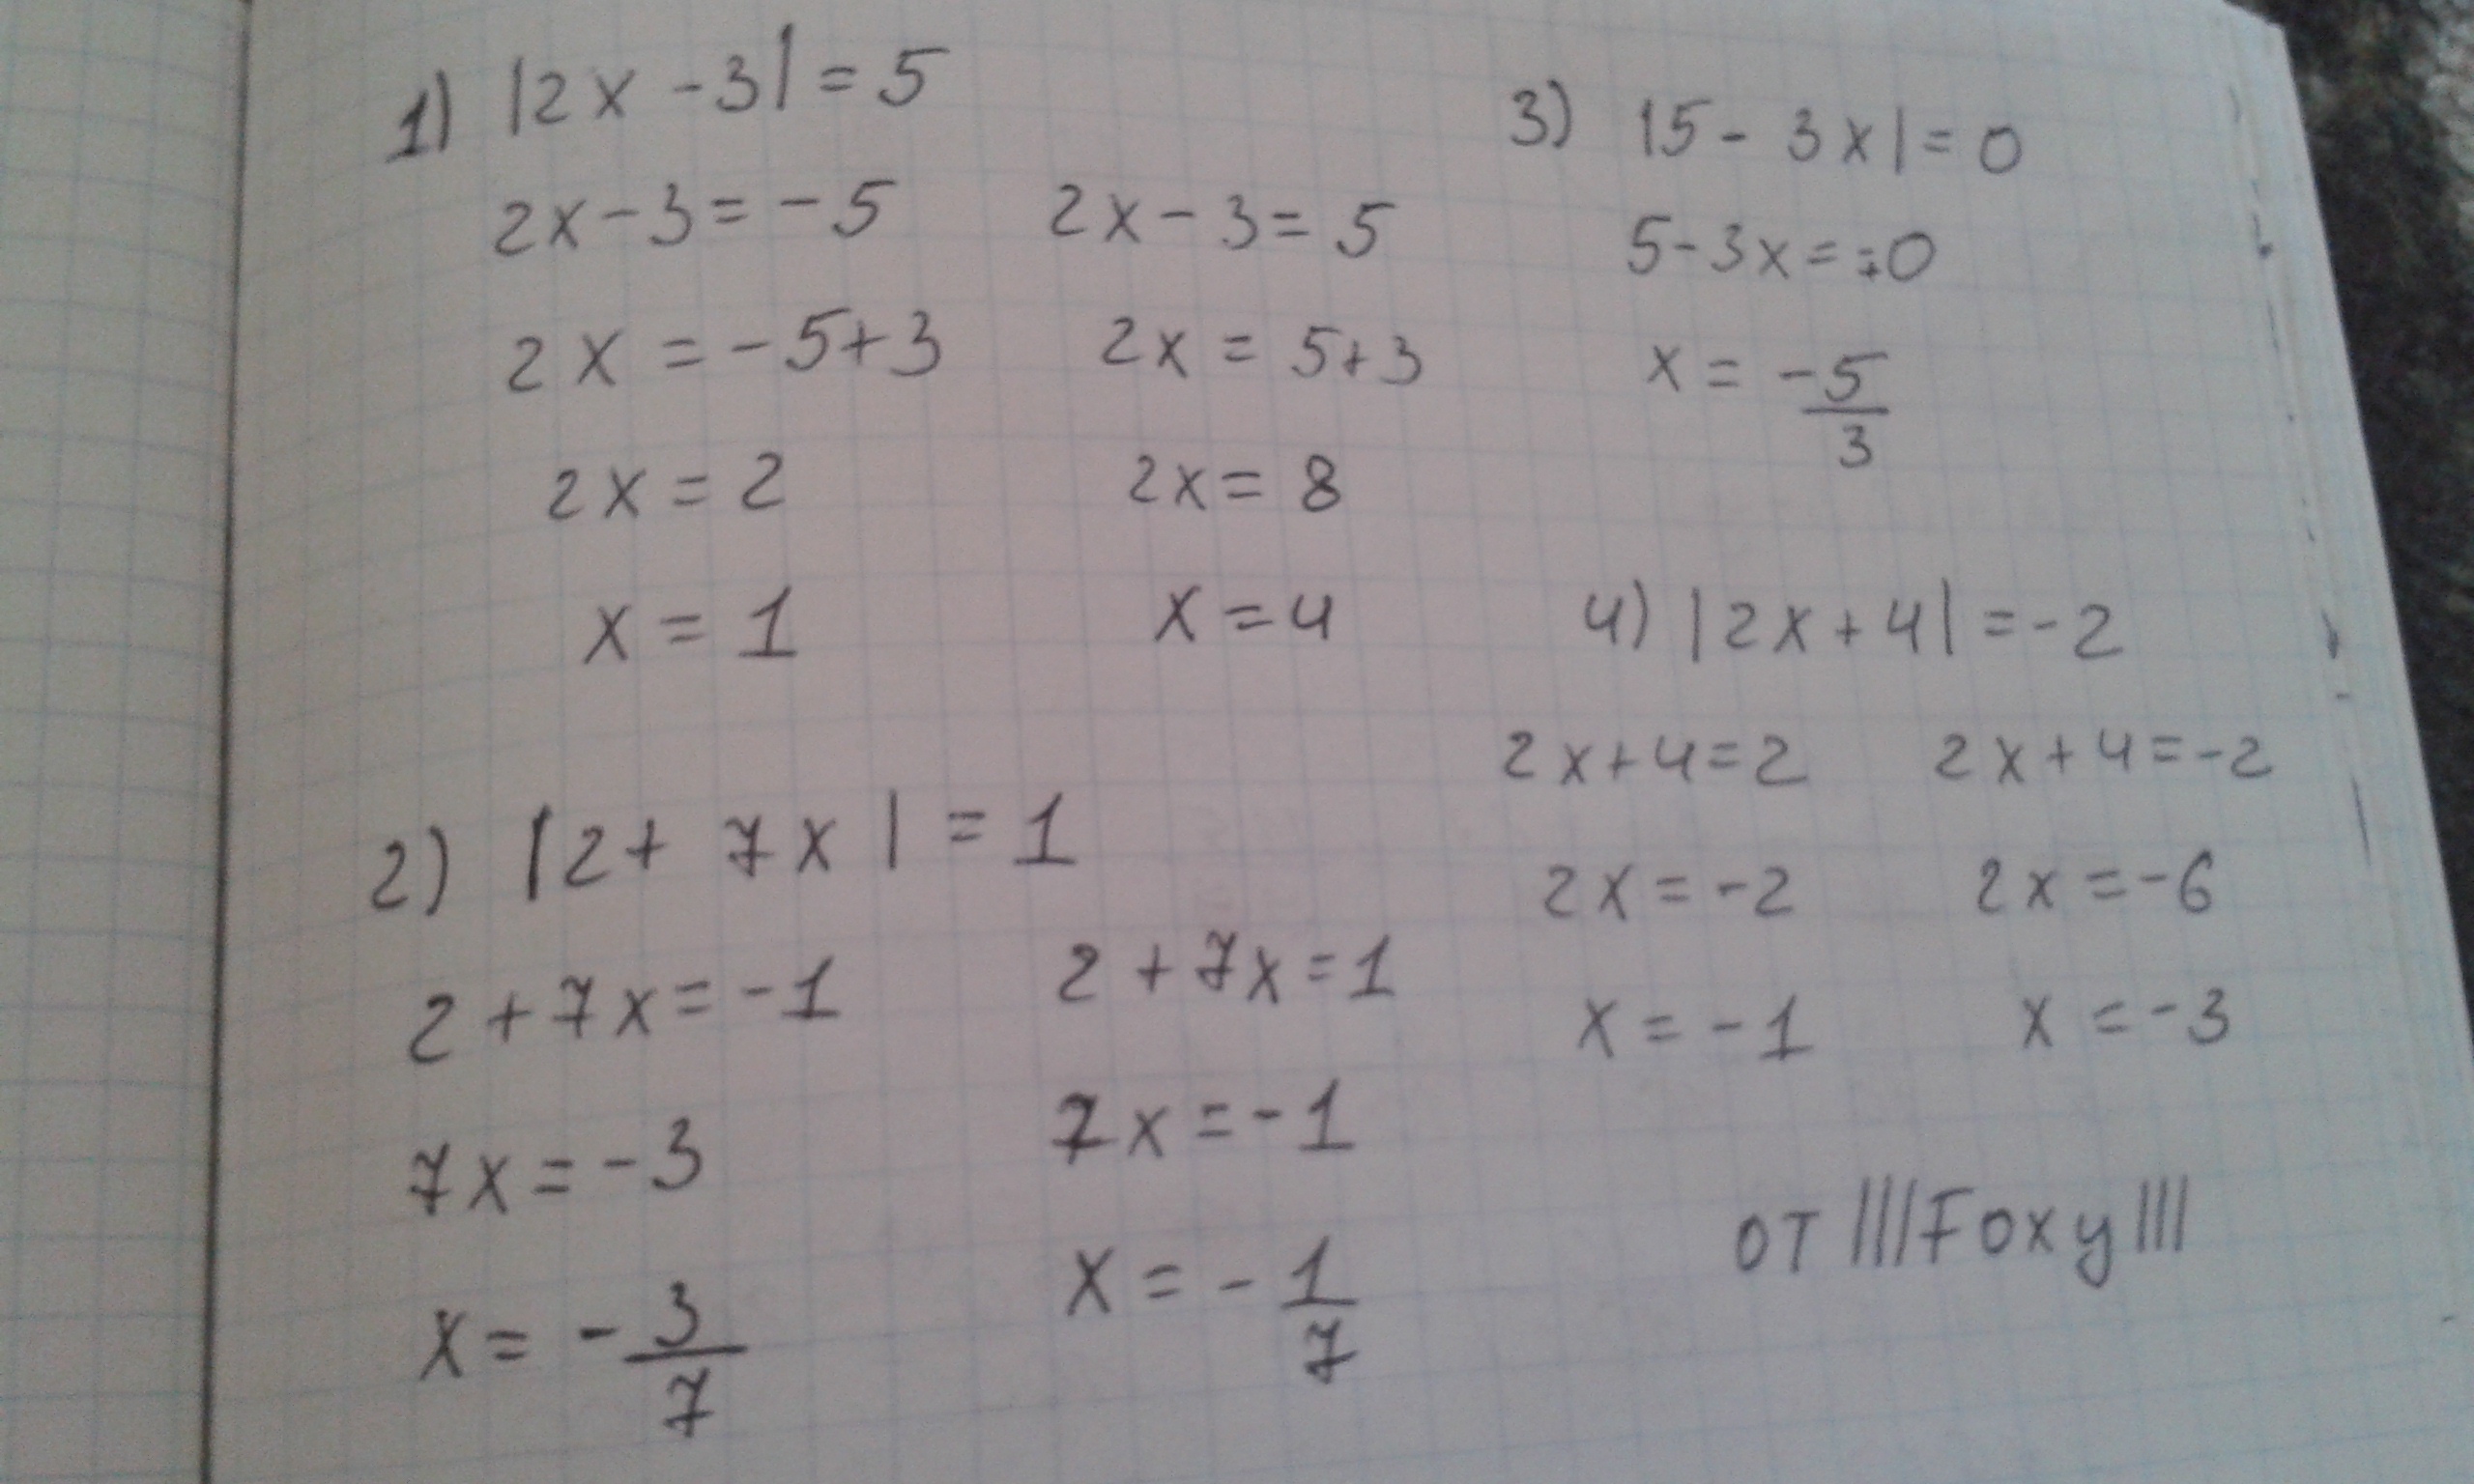 1) |2x - 3| = 5
2x - 3 = -5 2x - 3 = 5
2x = -5+3 2x = 5+3
2x = 2 2x = 8
x = 1 x = 4
2) |2 + 7x| = 1
2 + 7x = -1 2 + 7x = 1
7x = -3 7x = -1
x = -3/7 x = -1/7
3) |5 - 3x| = 0
5 - 3x = 0
x = -5/3
4) |2x + 4| = -2
2x + 4 = 2 2x + 4 = -2
2x = -2 2x = -6
x = -1 x = -3
от |||Foxy|||